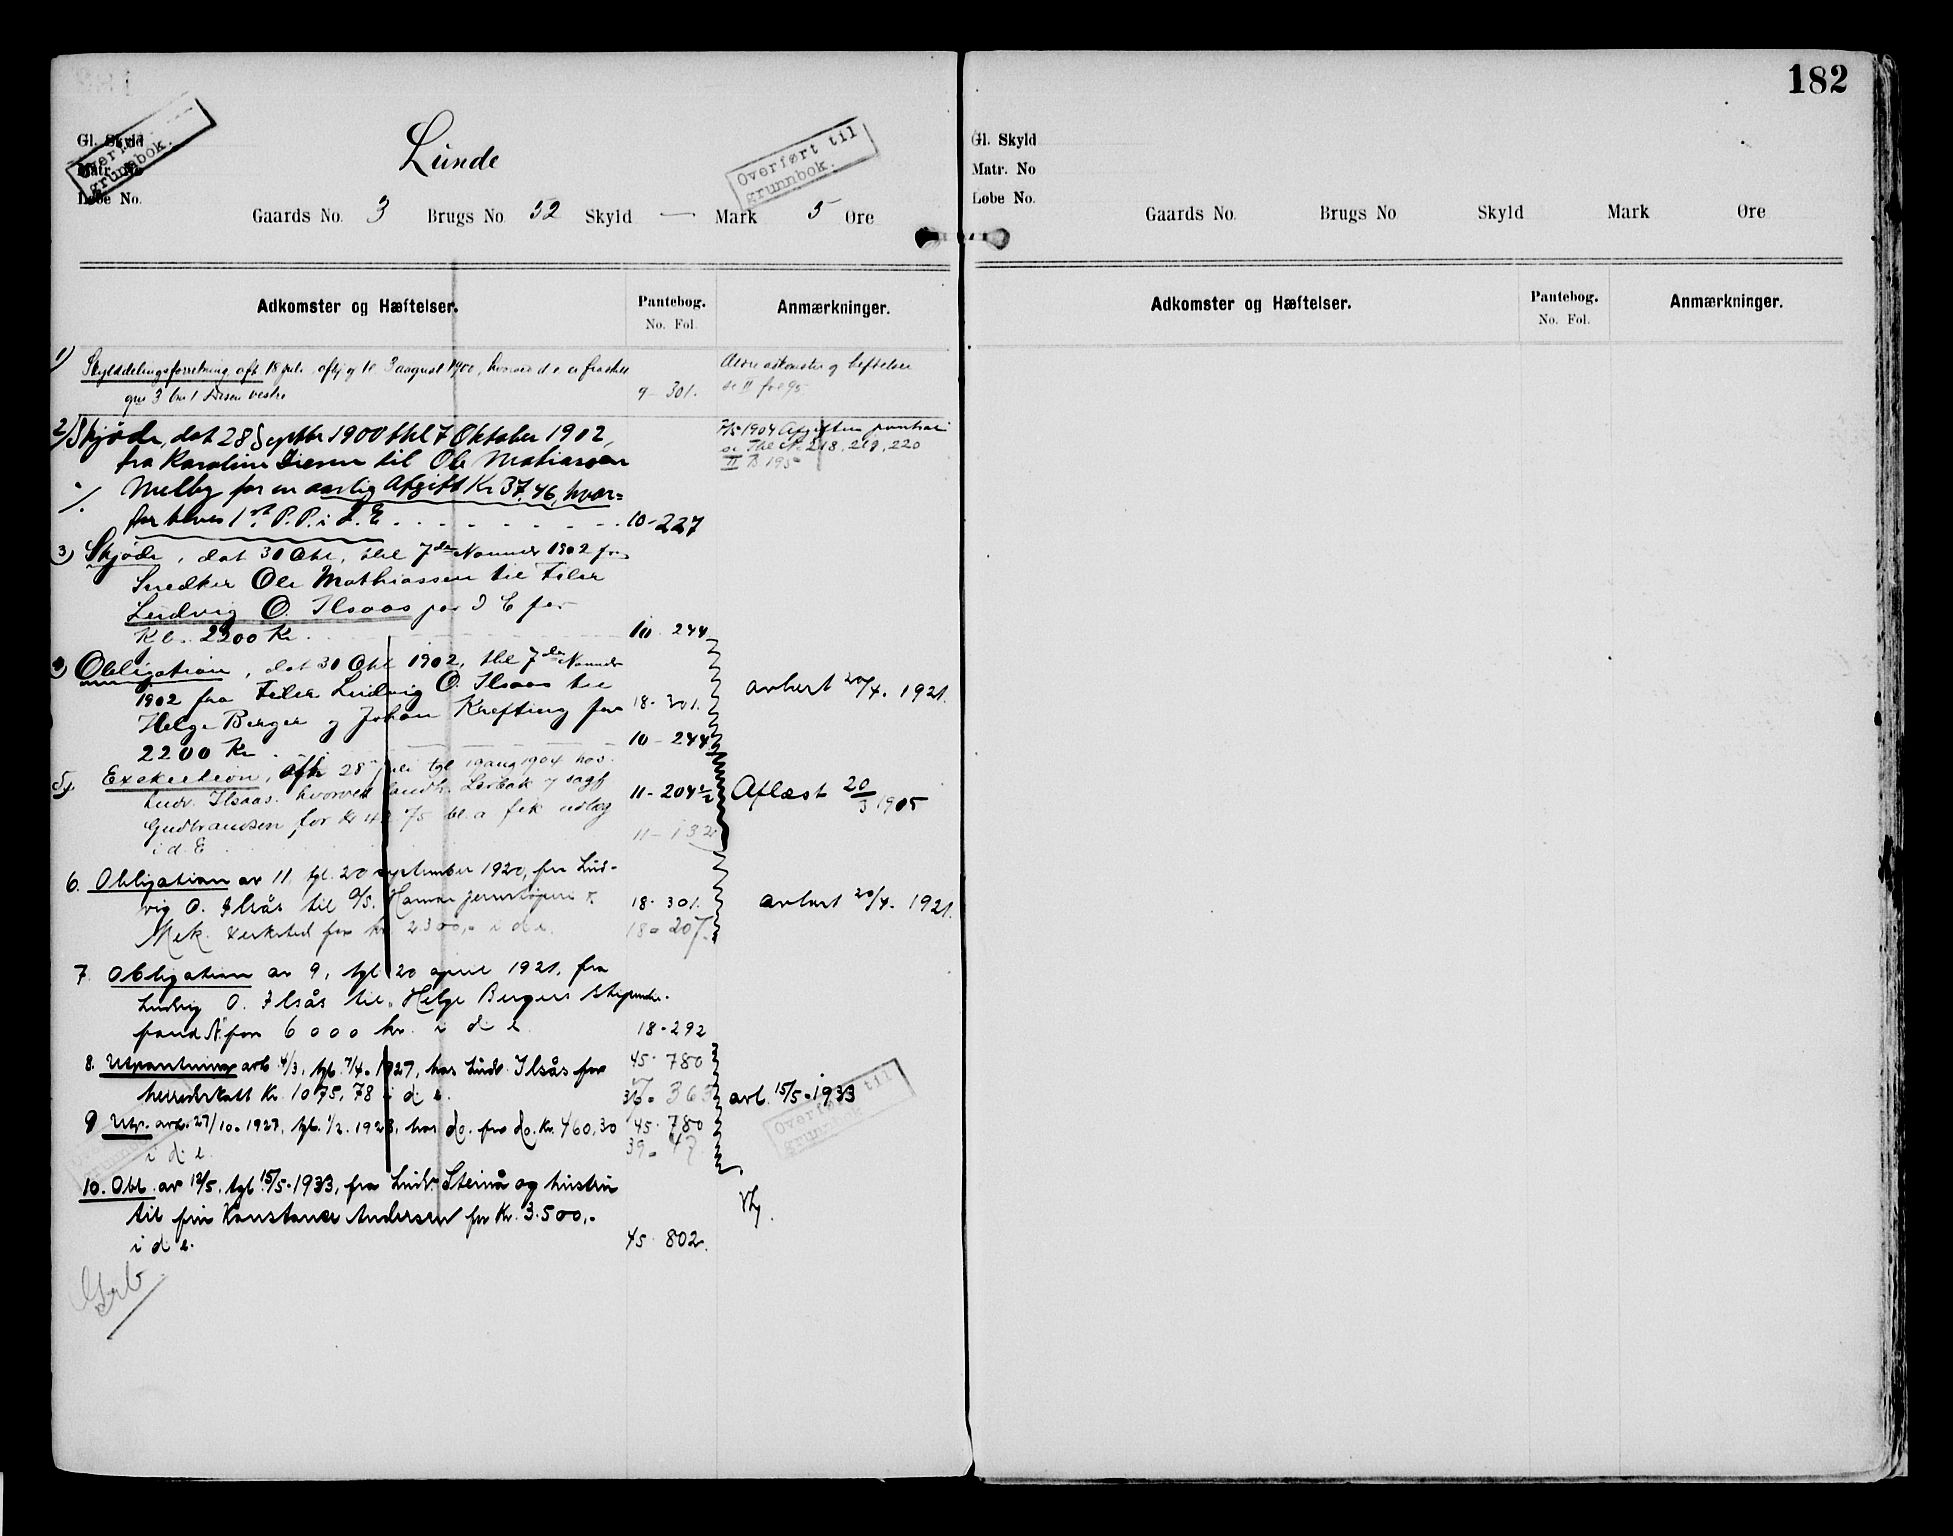 182
Gl. Skyld
Matr. No
Løbe No.
Overført til
grunnbok.
Lunde
Overført til
grunnbok.
Gaards No. 3 Brugs No. 52 Skyld — Mark 5 Øre
Adkomster og Hæftelser.
Pantebog.
No. Fol.
Anmærkninger.
1) Skylddelingsforretning afh 18 juli, afhj og tl 3 august 1900, hvorved d e er fraskilt
gno 3 bno 1 Disen vestre
9 - 301.
Ældre adkomster og heftelser
se II fol 95
2) Skjøde, dat 28 Septbr 1900 thl 7 Oktober 1902,
fra Karoline Disen til Ole Mathiassen
Melby for en aarlig Afgift Kr 37,46, hvor=
for haves 1st P.P. i d. E. 10-227
1904 Afgiften
se Thl No 218, 219, 220
II B 195
3) Skjøde, dat 31 Okt, thl 7de Novembr 1902 fra
Snedker Ole Mathiassen til Filer
Ludvig O. Ilsaas paa d E for
Kb. 2200 Kr. 10 - 244
4) Obligation, dat 30 Okt 1902, thl 7de Novembr
1902 fra Filer Ludvig O. Ilsaas til
Helge Berger og Johan Krefting for
2200 Kr
18 - 301.
10 - 244
avlyst 20/4. 1921.
5) Exekution, afh 28 juli tgl 1904 hos
Ludv. Ilsaas. hvorved
Gudbrandsen for Kr bl. a fik udlæg
i d. E
11 - 204 1/2
11 - 132
Aflæst 20/3 1905
6. Obligation av 11, tgl. 20 september 1920, fra Lud-
vig O. Ilsås til A/S. Hamar jernstøperi &
Mek. Verksted for kr. 2300,- i d. e.
18 - 301.
18 - 207.
avlyst 20/4. 1921.
7. Obligation av 9, tgl 20 april 1921, fra
Ludvig O. Ilsås til Helge Bergers stipendie-
fond for 6000 kr. i d. e. 18-292
8. Utpantning avh. 4/3, tgl. 7/4. 1927, hos Ludv. Ilsås for
herredskatt Kr. 1075,78 i d. e.
45 - 780
36 - 363
avl. 15/5 - 1933
9 Utp. avh. 27/10. 1927, tgl. 1/2. 1928, hos do. for do. Kr. 460,30
i d. e.
45 - 780
39 - 47
Overført til
grunnbok.
10. Obl. av 12/5. tgl 15/5 - 1933, fra Ludv. Stenså og hustru
til frøk Konstance Andersen for Kr. 3.500,-
i d. e. 45 - 802.
Grb
Gl. Skyld
Matr. No
Løbe No.
Gaards No. Brugs No Skyld Mark Øre
Adkomster og Hæftelser.
Pantebog.
No. Fol.
Anmærkninger.